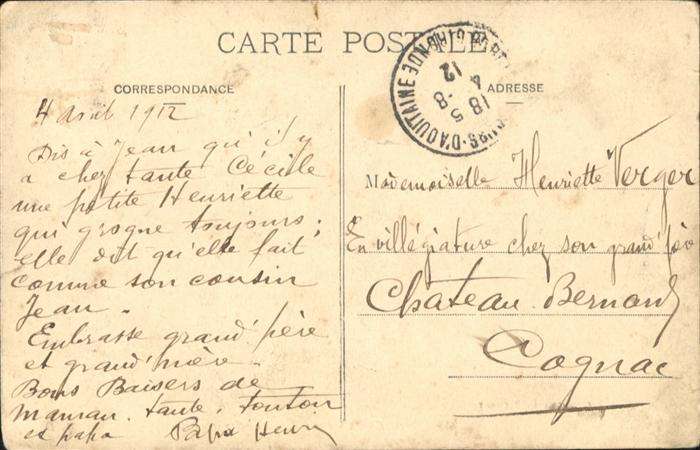 CARTE POSTALE
CORRESPONDANCE
ADRESSE
18 5 -8
4 12
COURS-D'AQUITAINE GIRONDE
4 avril 1912
Dis à Jean qu'il y
a chez tante Cécile
une petite Henriette
qui grogne toujours;
elle dit qu'elle fait
comme son cousin
Jean.
Embrasse grand'père
et grand'mère.
Bons Baisers de
maman. tante. tonton
et papa Papa Henri
Mademoiselle Henriette Verger
En villégiature chez son grand'père
Château-Bernard
Cognac